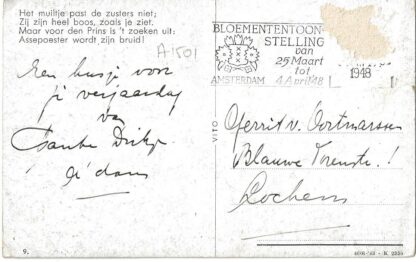 Het muiltje past de zusters niet;
Zij zijn heel boos, zoals je ziet.
Maar voor den Prins is 't zoeken uit:
Assepoester wordt zijn bruid!
A-1501
Een kusje voor
je verjaardag
van
Tante Dirkje
A'dam
9.
VITO
BLOEMENTENTOON-
STELLING
van
25 Maart
tot
4 April '48
AMSTERDAM
1948
Gerrit v. Oortmarssen
Blauwe Torentje!
Lochem